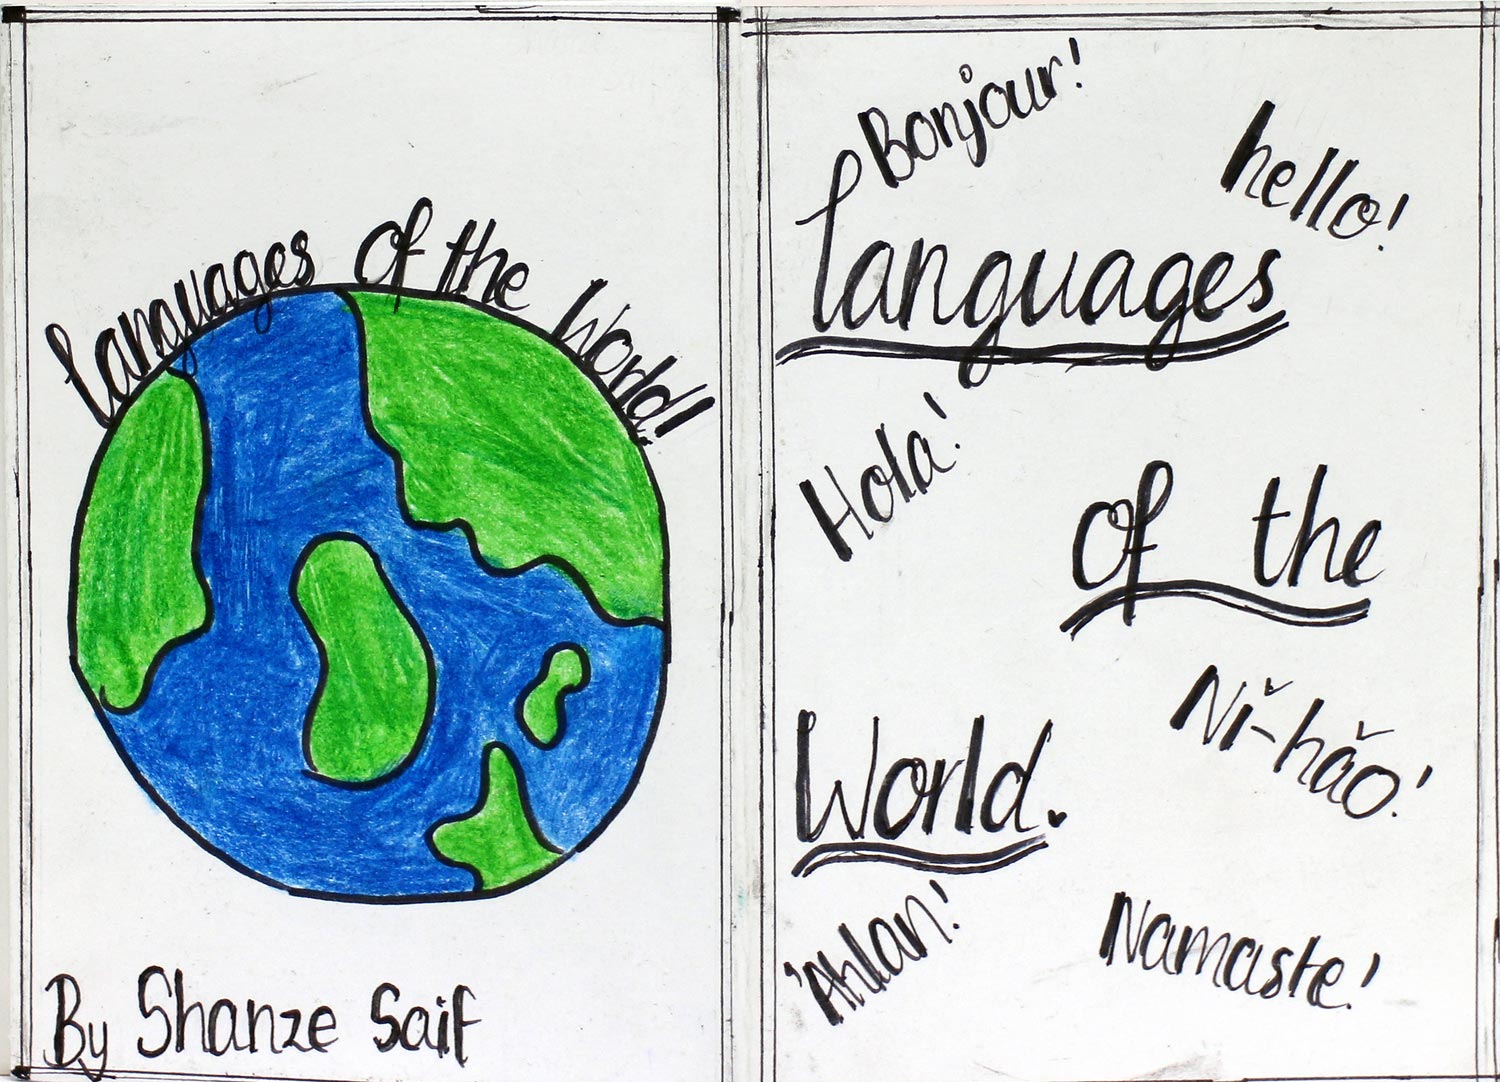 Languages of the World!
By Shanze Saif
Bonjour!
hello!
Languages
Hola!
of the
Nǐ-hǎo!
World.
'Ahlan!
Namaste!